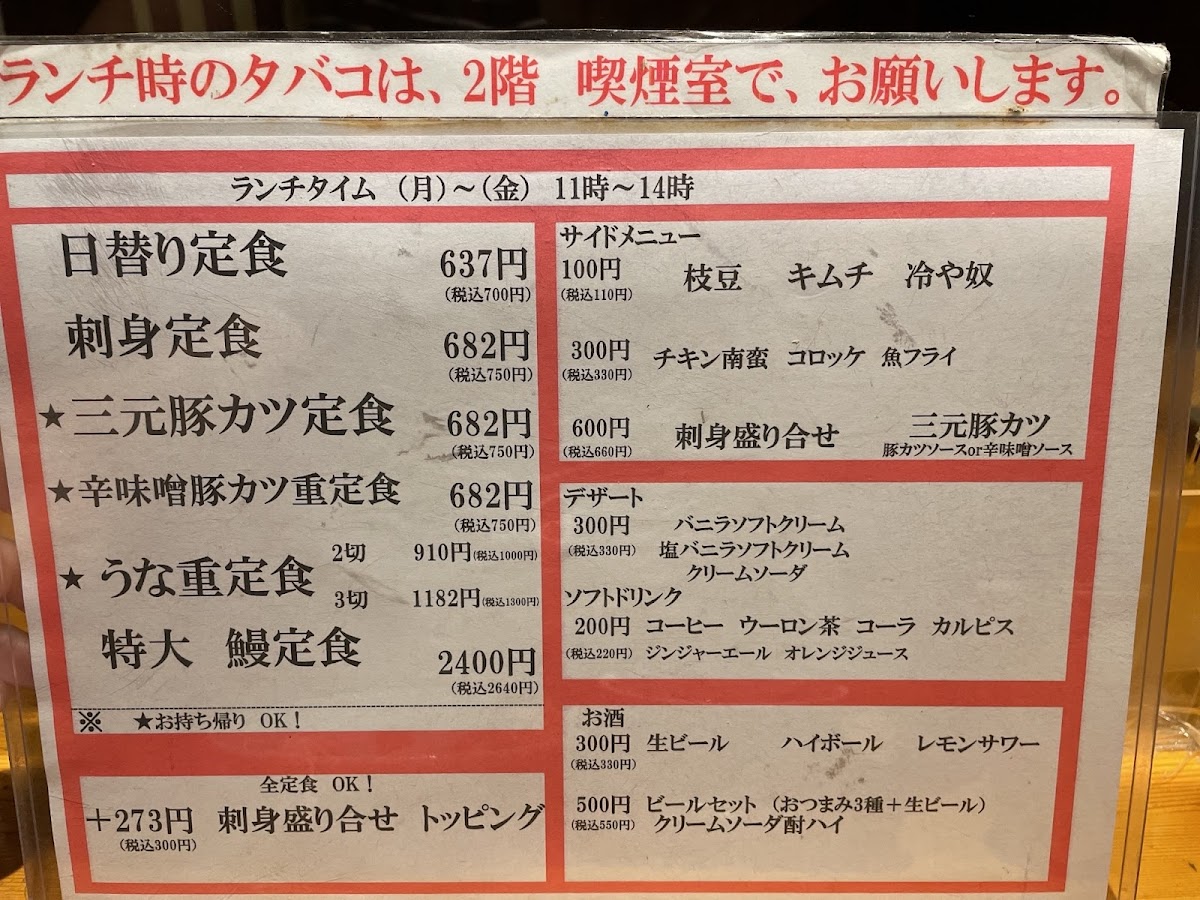 ランチ時のタバコは、2階 喫煙室で、お願いします。
ランチタイム (月)～(金) 11時～14時
日替り定食 637円
(税込700円)
刺身定食 682円
(税込750円)
★三元豚カツ定食 682円
(税込750円)
★辛味噌豚カツ重定食 682円
(税込750円)
★うな重定食
2切 910円(税込1000円)
3切 1182円(税込1300円)
特大 鰻定食 2400円
(税込2640円)
※ ★お持ち帰り OK！
全定食 OK！
＋273円 刺身盛り合せ トッピング
(税込300円)
サイドメニュー
100円 枝豆 キムチ 冷や奴
(税込110円)
300円 チキン南蛮 コロッケ 魚フライ
(税込330円)
600円 刺身盛り合せ 三元豚カツ
(税込660円) 豚カツソースor辛味噌ソース
デザート
300円 バニラソフトクリーム
(税込330円) 塩バニラソフトクリーム
クリームソーダ
ソフトドリンク
200円 コーヒー ウーロン茶 コーラ カルピス
(税込220円) ジンジャーエール オレンジジュース
お酒
300円 生ビール ハイボール レモンサワー
(税込330円)
500円 ビールセット (おつまみ3種＋生ビール)
(税込550円) クリームソーダ酎ハイ